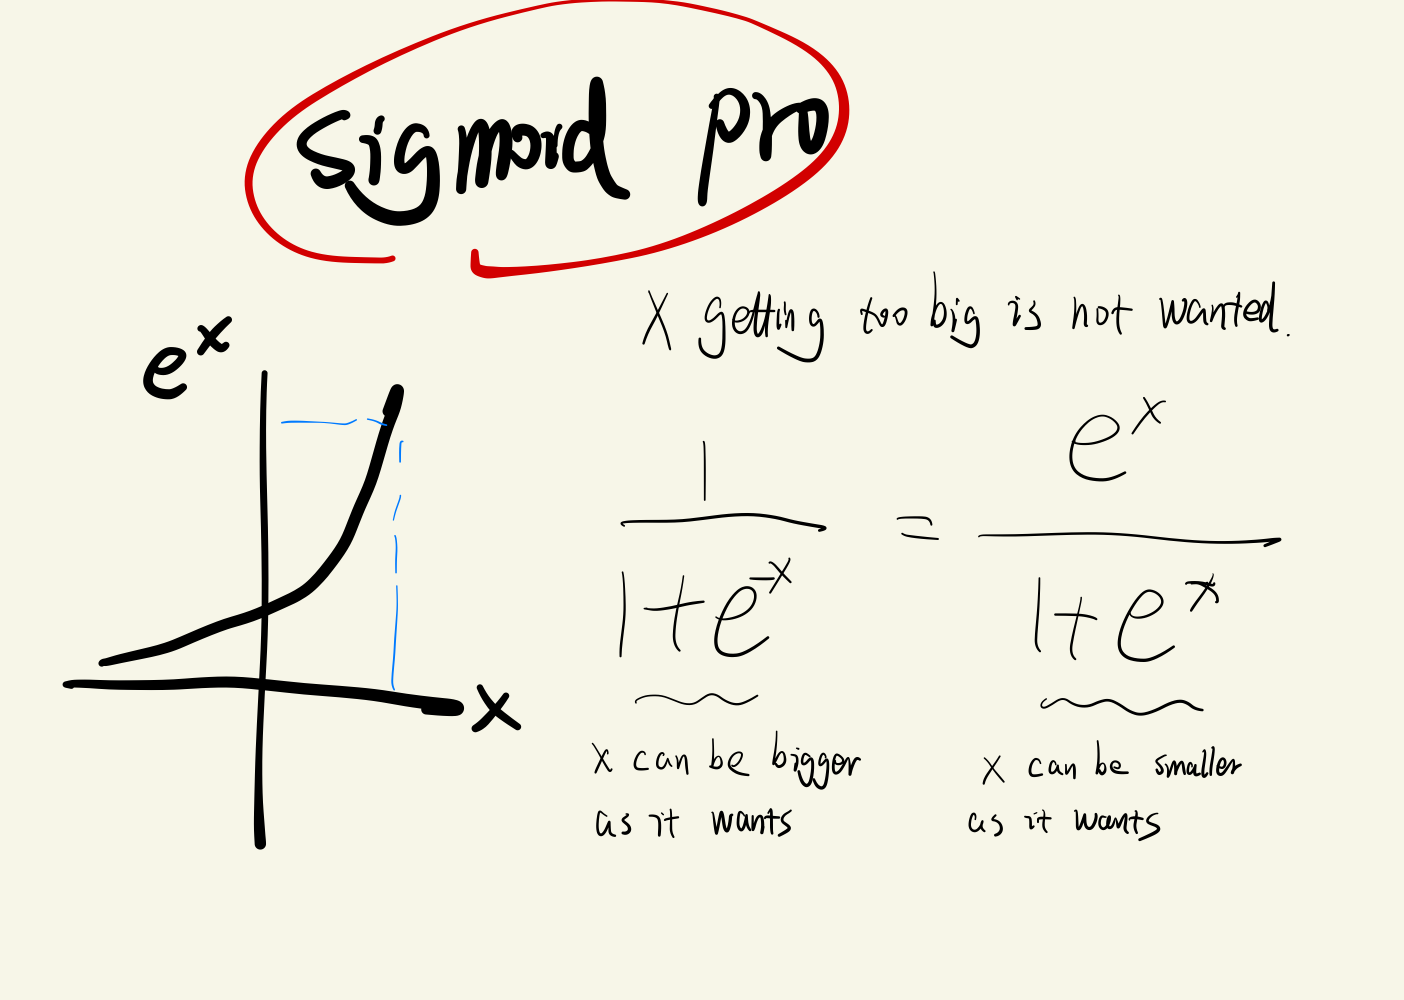 sigmoid pro
X getting too big is not wanted.
e^x
1/(1+e^-x) = e^x/(1+e^x)
x
x can be bigger
as it wants
x can be smaller
as it wants